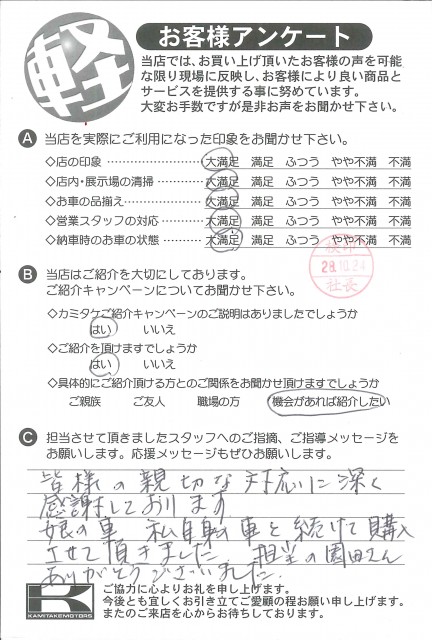 軽
お客様アンケート
当店では、お買い上げ頂いたお客様の声を可能
な限り現場に反映し、お客様により良い商品と
サービスを提供する事に努めています。
大変お手数ですが是非お声をお聞かせ下さい。
A 当店を実際にご利用になった印象をお聞かせ下さい。
◇店の印象 ………………… 大満足 満足 ふつう やや不満 不満
◇店内・展示場の清掃 ……… 大満足 満足 ふつう やや不満 不満
◇お車の品揃え……………… 大満足 満足 ふつう やや不満 不満
◇営業スタッフの対応 ……… 大満足 満足 ふつう やや不満 不満
◇納車時のお車の状態 ……… 大満足 満足 ふつう やや不満 不満
28.10.24
社長
B 当店はご紹介を大切にしております。
ご紹介キャンペーンについてお聞かせ下さい。
◇カミタケご紹介キャンペーンのご説明はありましたでしょうか
はい いいえ
◇ご紹介を頂けますでしょうか
はい いいえ
◇具体的にご紹介頂ける方とのご関係をお聞かせ頂けますでしょうか
ご親族 ご友人 職場の方 機会があれば紹介したい
C 担当させて頂きましたスタッフへのご指摘、ご指導メッセージを
お願いします。応援メッセージもぜひお願いします。
皆様の親切な対応に深く
感謝しております
娘の車 私自転車と続けて購入
させて頂きました 担当の園田さん
ありがとうございました.
K
KAMITAKEMOTORS
ご協力に心よりお礼を申し上げます。
今後とも宜しくお引き立てご愛顧の程お願い申し上げます。
またのご来店を心からお待ちしております。